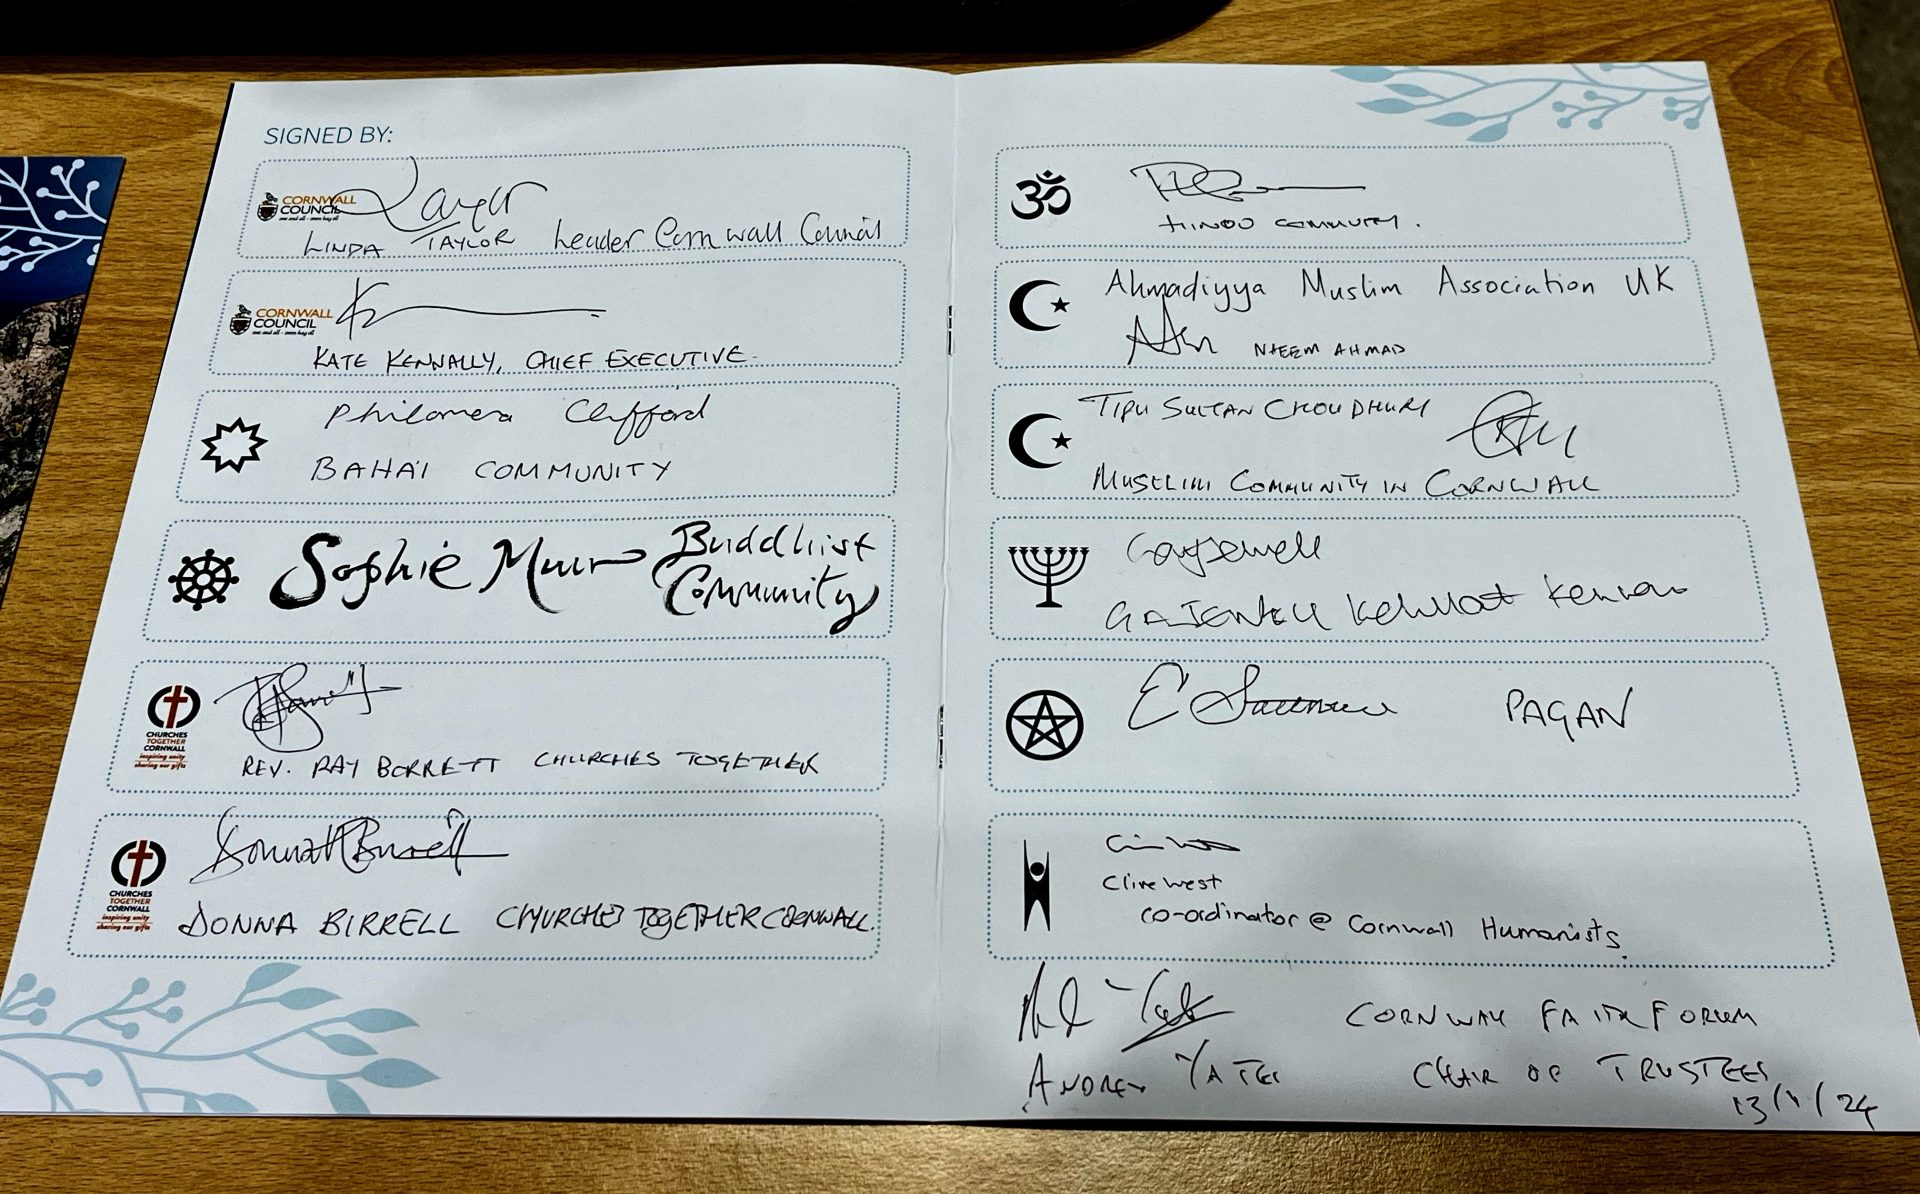 SIGNED BY:
CORNWALL
COUNCIL
one and all · onen hag oll
Taylor
LINDA TAYLOR Leader Cornwall Council
CORNWALL
COUNCIL
one and all · onen hag oll
KATE KENNALLY, CHIEF EXECUTIVE.
Philomena Clifford
BAHA'I COMMUNITY
Sophie Muir Buddhist
Community
CHURCHES
TOGETHER
CORNWALL
inspiring unity
sharing our gifts
REV. RAY BORRETT CHURCHES TOGETHER
CHURCHES
TOGETHER
CORNWALL
inspiring unity
sharing our gifts
DONNA BIRRELL CHURCHES TOGETHER CORNWALL.
ॐ
HINDU COMMUNITY.
Ahmadiyya Muslim Association UK
NAEEM AHMAD
TIPU SULTAN CHOUDHURY
MUSELIM COMMUNITY IN CORNWALL
Kehillat Kernow
PAGAN
Clive West
co-ordinator @ Cornwall Humanists.
CORNWALL FAITH FORUM
ANDREW YATES CHAIR OF TRUSTEES